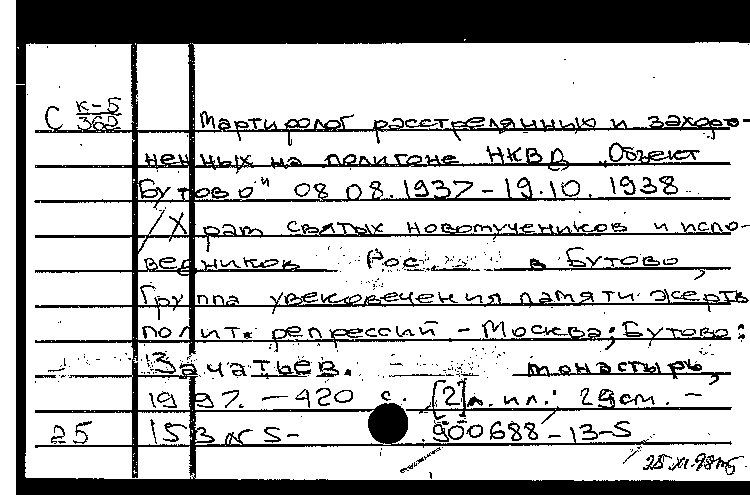 С К-5/362 Мартиролог расстрелянных и захоро-
ненных на полигоне НКВД „Объект
Бутово" 08.08.1937-19.10.1938
/Храм святых новомучеников и испо-
ведников Рос. в Бутово,
Группа увековечения памяти жертв
полит. репрессий - Москва; Бутово:
Зачатьев. монастырь,
1997. - 420 с. [2] л. ил.; 29 см. -
25 ISBN 5- 900688-13-5